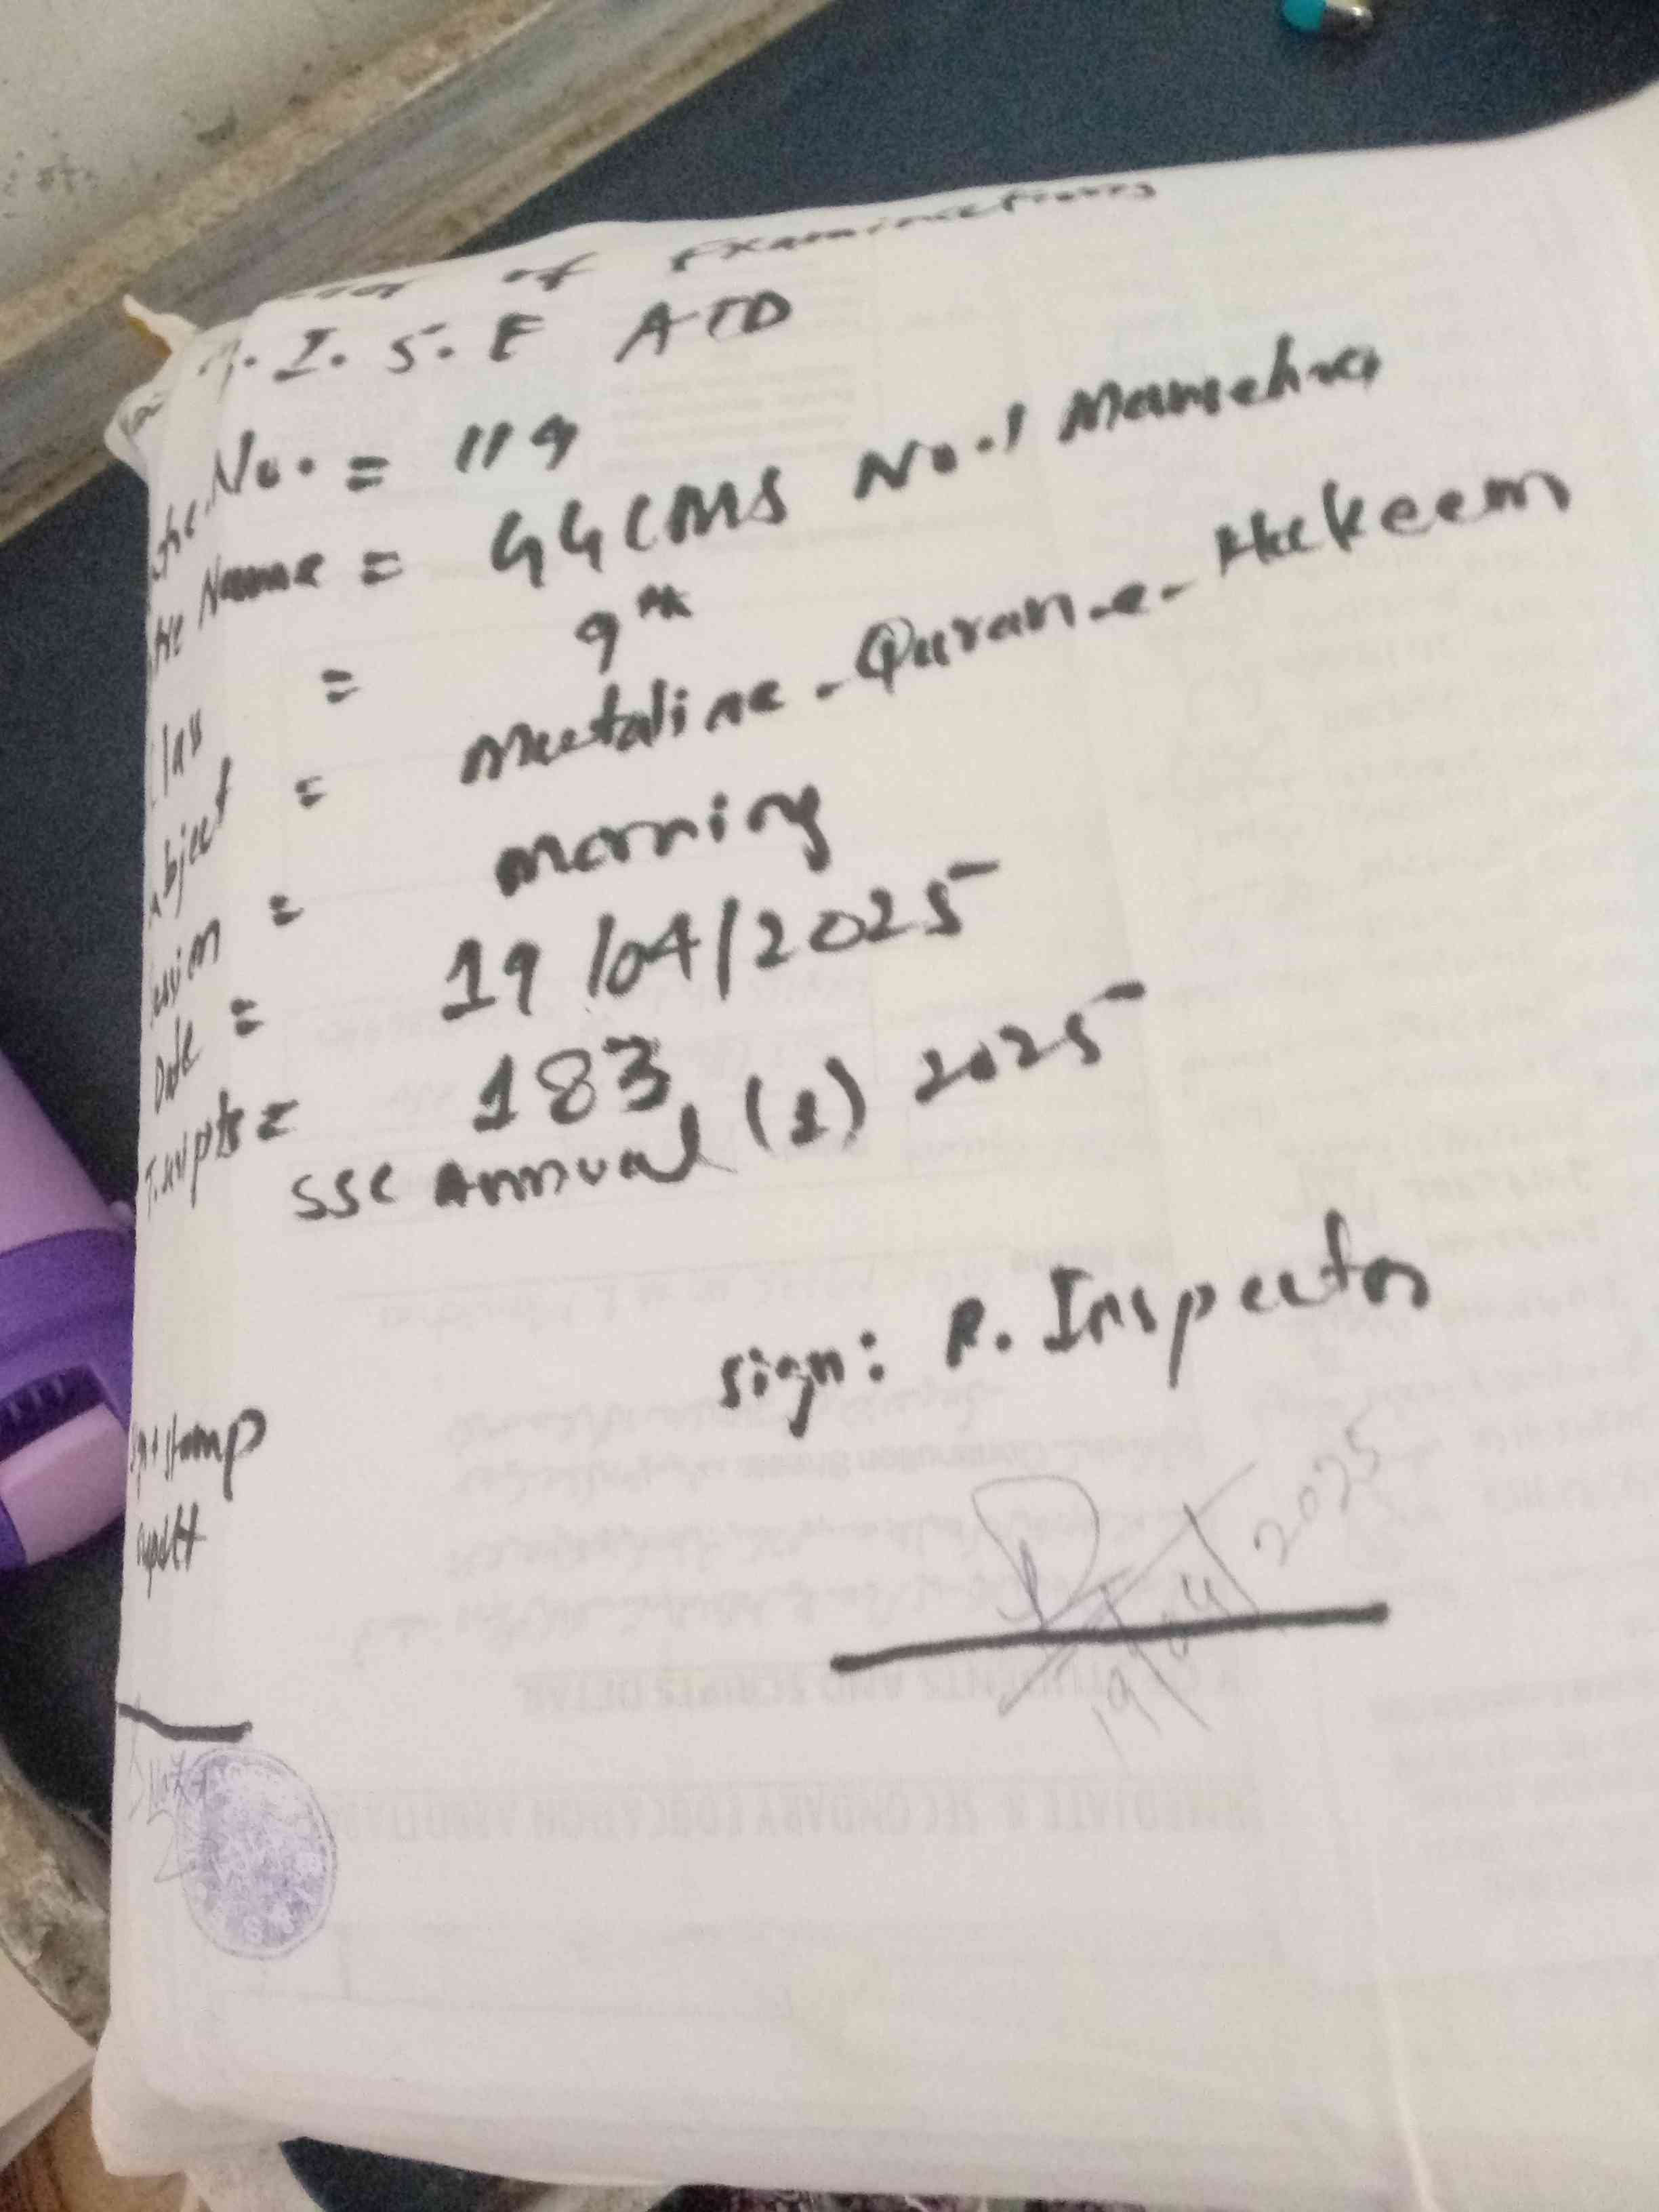 of Examinations
.I.S.E ATD
No. = 119
Name = GGCMS No.1 Mansehra
Class = 9th
bject = Mutalia-e-Quran-e-Hakeem
ssion = Morning
Date = 19/04/2025
T.scripts = 183
SSC Annual (1) 2025
sign: R. Inspector
stamp
19/04/2025